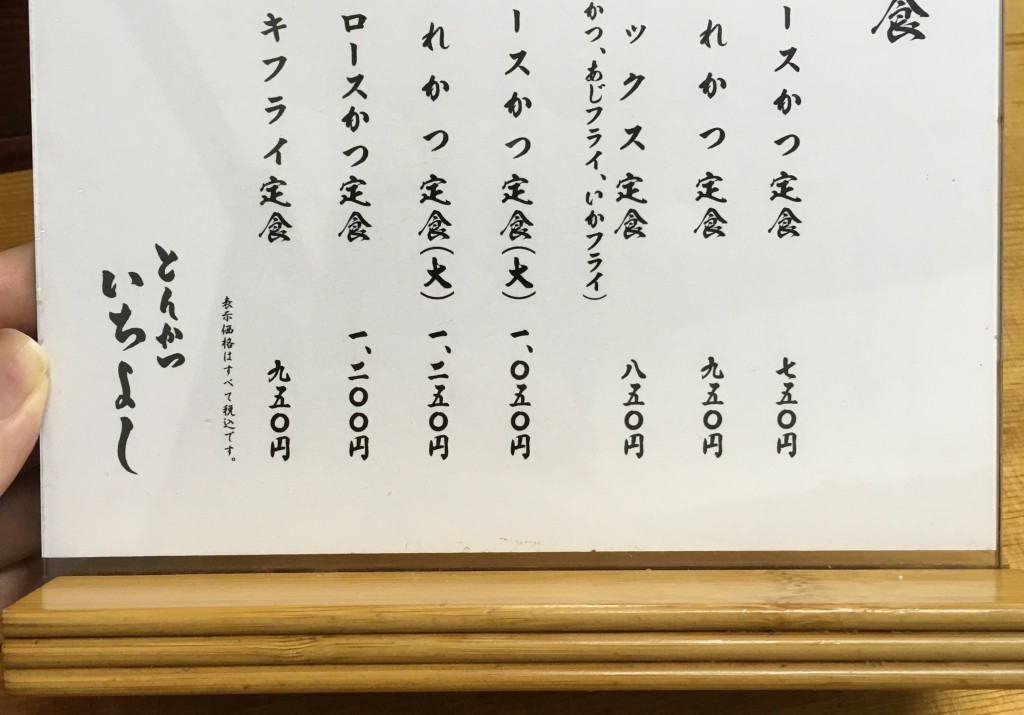 食
ースかつ定食 七五〇円
れかつ定食 九五〇円
ックス定食 八五〇円
かつ、あじフライ、いかフライ)
ースかつ定食(大) 一、〇五〇円
れかつ定食(大) 一、二五〇円
ロースかつ定食 一、二〇〇円
キフライ定食 九五〇円
表示価格はすべて税込です。
とんかつ
いちよし